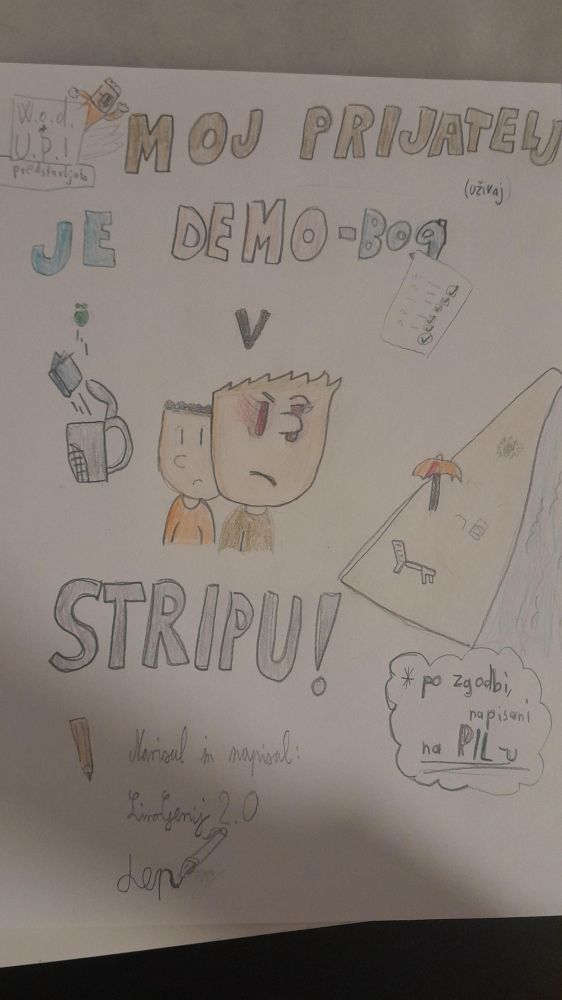 W.o.d.
+
U.P.I
predstavljata
MOJ PRIJATELJ
(uživaj)
JE DEMO-BOG
V
STRIPU!
* po zgodbi,
napisani
na PIL-u
Narisal in napisal:
2.0